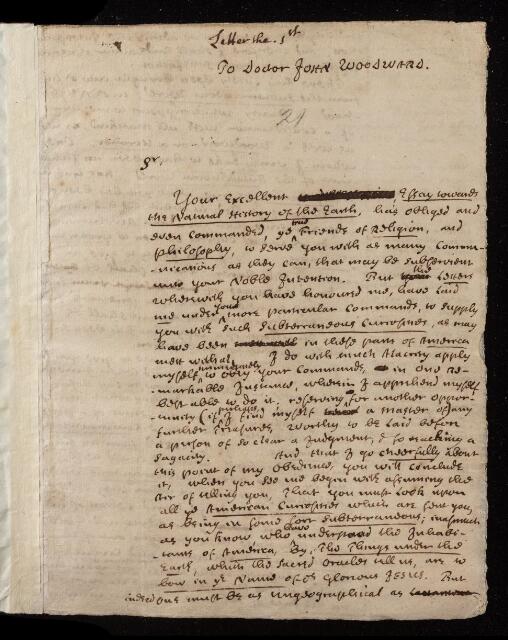 Letter the. 1st
To Doctor JOHN WOODWARD.
21
Sr.
Your Excellent Essay towards
the Natural History of the Earth, has obliged and
even commanded, ye true Friends of Religion, and
Philosophy, to serve you with as many Commu-
nications as they can, that may be subservient
unto your Noble Intention. But the Letters
wherewith you have honoured me, have laid
me under your more particular Commands, to supply
you with such Subterraneous Curiosities, as may
have been in these parts of America
mett withal. I do with much Alacrity apply
myself, immediately to obey your Commands, in one Re-
markable Instance, wherein I apprehend myself
best able to do it, reserving for another oppor-
tunity (if perhaps I find myself a master of any
further Treasures, worthy to be laid before
a person of so clear a Judgment, & so reaching a
Sagacity. And that I go cheerfully about
this point of my obedience, you will conclude
it, when you see me begin with assuming the
of telling you, That you must look upon
all ye American Curiosities which are sent you,
as being in some sort Subterraneous; inasmuch
as you know who have understood the Inhabi-
tants of America, By, The Things under the
Earth, which the sacred Oracles tell us, are to
bow in ye Name of or Glorious JESUS. But
indeed one must be as ungeographical as